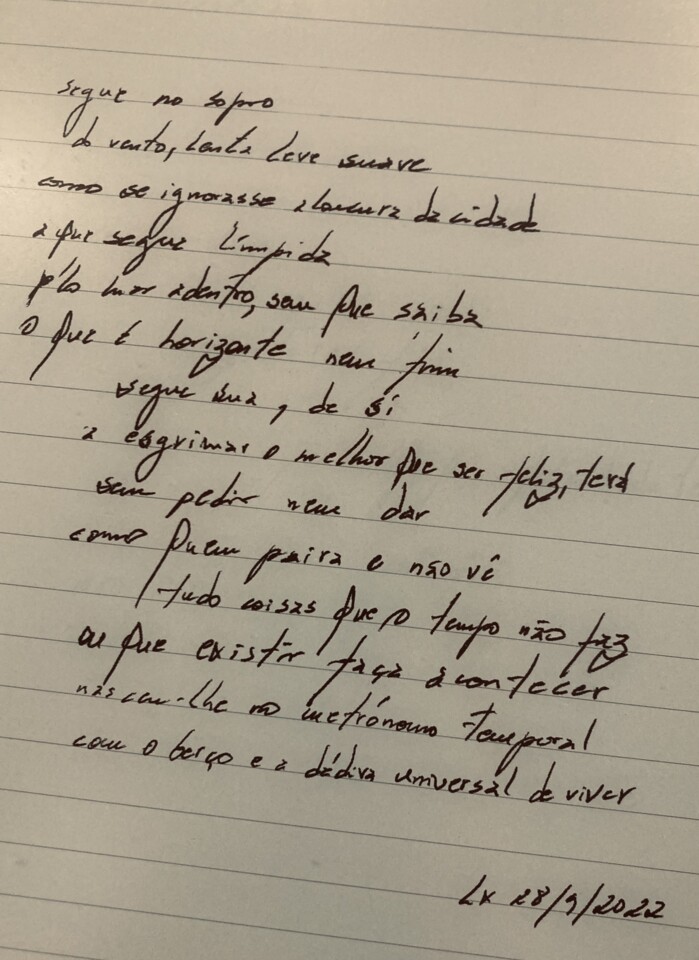 segue no sopro
do vento, lenta leve suave
como se ignorasse a loucura da cidade
a que segue límpida
p'lo mar adentro, sem que saiba
o que é horizonte nem fim
segue sua, de si
a esgrimar o melhor que ser feliz, terá
sem pedir nem dar
como quem paira e não vê
tudo coisas que o tempo não faz
ou que existir faça acontecer
nasceu-lhe no metrónomo temporal
com o berço e a dádiva universal de viver
Lx 28/9/2022